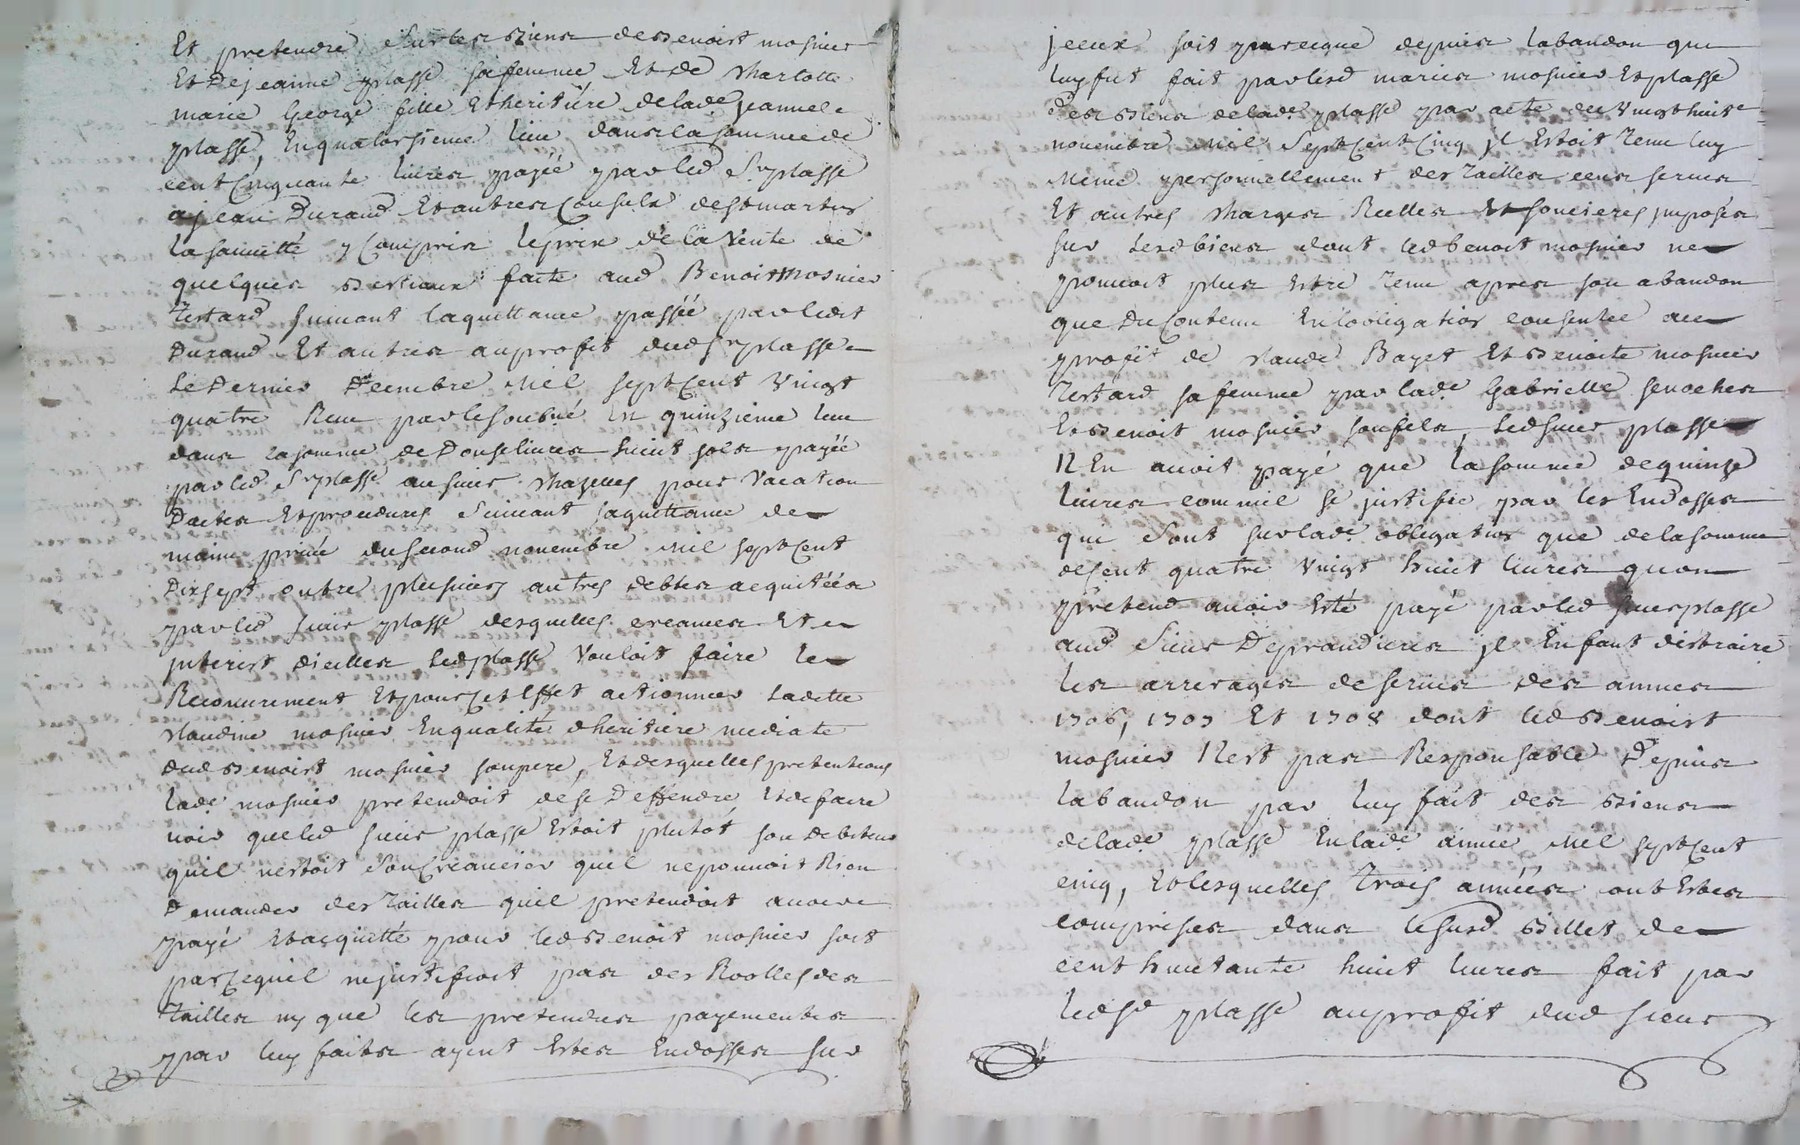 Et pretendre sur les biens de benoist mosnier
Et De jeanne plasse sa femme Et de Charlotte
marie George fille Et heritiére de lad.e jeanne
plasse, En quatorsieme lieu dans la somme de
cent Cinquante livres payée par led Sr plasse
a jean Durand Et autres Consuls de st martin
la sauveté y Compris le prix de la Vente de
quelques bestiaux faite aud Benoist mosnier
Testard suivant la quittance passéé par ledit
Durand Et autres au profit dud Sr plasse
Le Dernier Decembre Mil sept Cent Vingt
quatre Receu par le soubné En quinzieme lieu
dans la somme de Douse livres huit sols payéé
par led Sr plasse au sieur Chazelles pour Vacation
D'actes Et procedures Suivant sa quittance de
main privée du second novembre Mil sept Cent
Dix sept outre plusieurs autres debtes acquitéés
par led sieur plasse desquelles creances Et
interest dicelles Led plasse Vouloit faire le
Recouvrement Et pour Cet Effet actionner Ladette
Claudine mosnier En qualité dheritiere mediate
dud benoist mosnier son pere, Et desquelles pretentions
lade mosnier pretendoit de se Deffendre Et de faire
voir que led sieur plasse Estoit plutôt son debiteur
quil nestoit son Creancier quil ne pouvoit Rien
Demander des Tailles quil pretendoit avoir
payé Et acquitté pour led benoit mosnier soit
par Cequil ne justifioit pas des Roolles des
Tailles ny que les pretendues payements
par luy faits ayent Estes Endosses sur
jceux soit parceque depuis labandon que
luy fut fait par lesd mariés mosnier Et plasse
Des biens de lade plasse par acte du Vingt huit
novembre Mil Sept Cent Cinq jl Estoit Tenu luy
Même personnellement des Tailles cens servis
Et autres charges Reelles Et foncieres jmposés
sur Lesd biens dont led benoit mosnier ne
pouvoit plus Estre Tenu apres son abandon
que Du Contenu En lobligation consentie au
profit de Claude Bayet Et benoite mosnier
Testard sa femme par lade Gabrielle
Et benoit mosnier son fils, Led sieur plasse
N En avoit payé que la somme de quinze
livres comme il se justifie par les Endosses
qui sont sur lade obligation que de la somme
de Cent quatre Vingt huit livres quon
prétend avoir Esté payé par led sieur plasse
aud Sieur Deprandieres jl En faut distraire
les arrerages de servis des années
1706, 1707 Et 1708 dont led benoist
mosnier N'est pas Responsable Depuis
labandon par luy fait des biens
de lade plasse En lade année Mil sept Cent
cinq, Et lesquelles Trois années ont Estes
comprises dans le susd billet de
cent huitante huit livres fait par
led Sr plasse au profit dud sieur